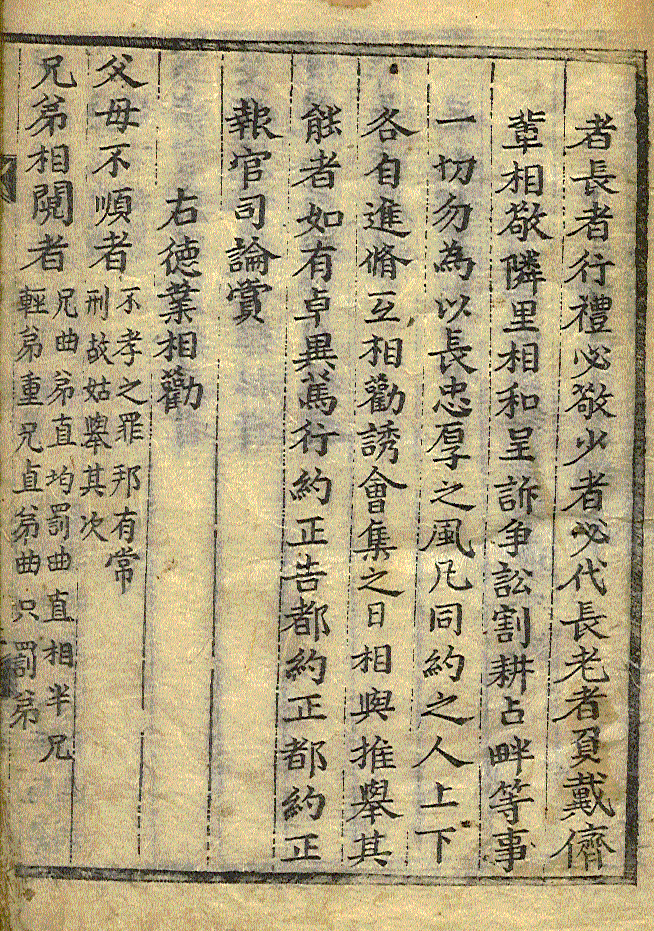 者長者行禮必敬少者必代長老者負戴儕
輩相敬隣里相和呈訴争訟割耕占畔等事
一切勿為以長忠厚之風凡同約之人上下
各自進脩互相勸誘會集之日相與推舉其
能者如有卓異篤行約正告都約正都約正
報官司論賞
右徳業相勸
父母不順者
不孝之罪邦有常
刑故姑舉其次
兄弟相鬩者
兄曲弟直均罰曲直相半兄
輕弟重兄直弟曲只罰弟